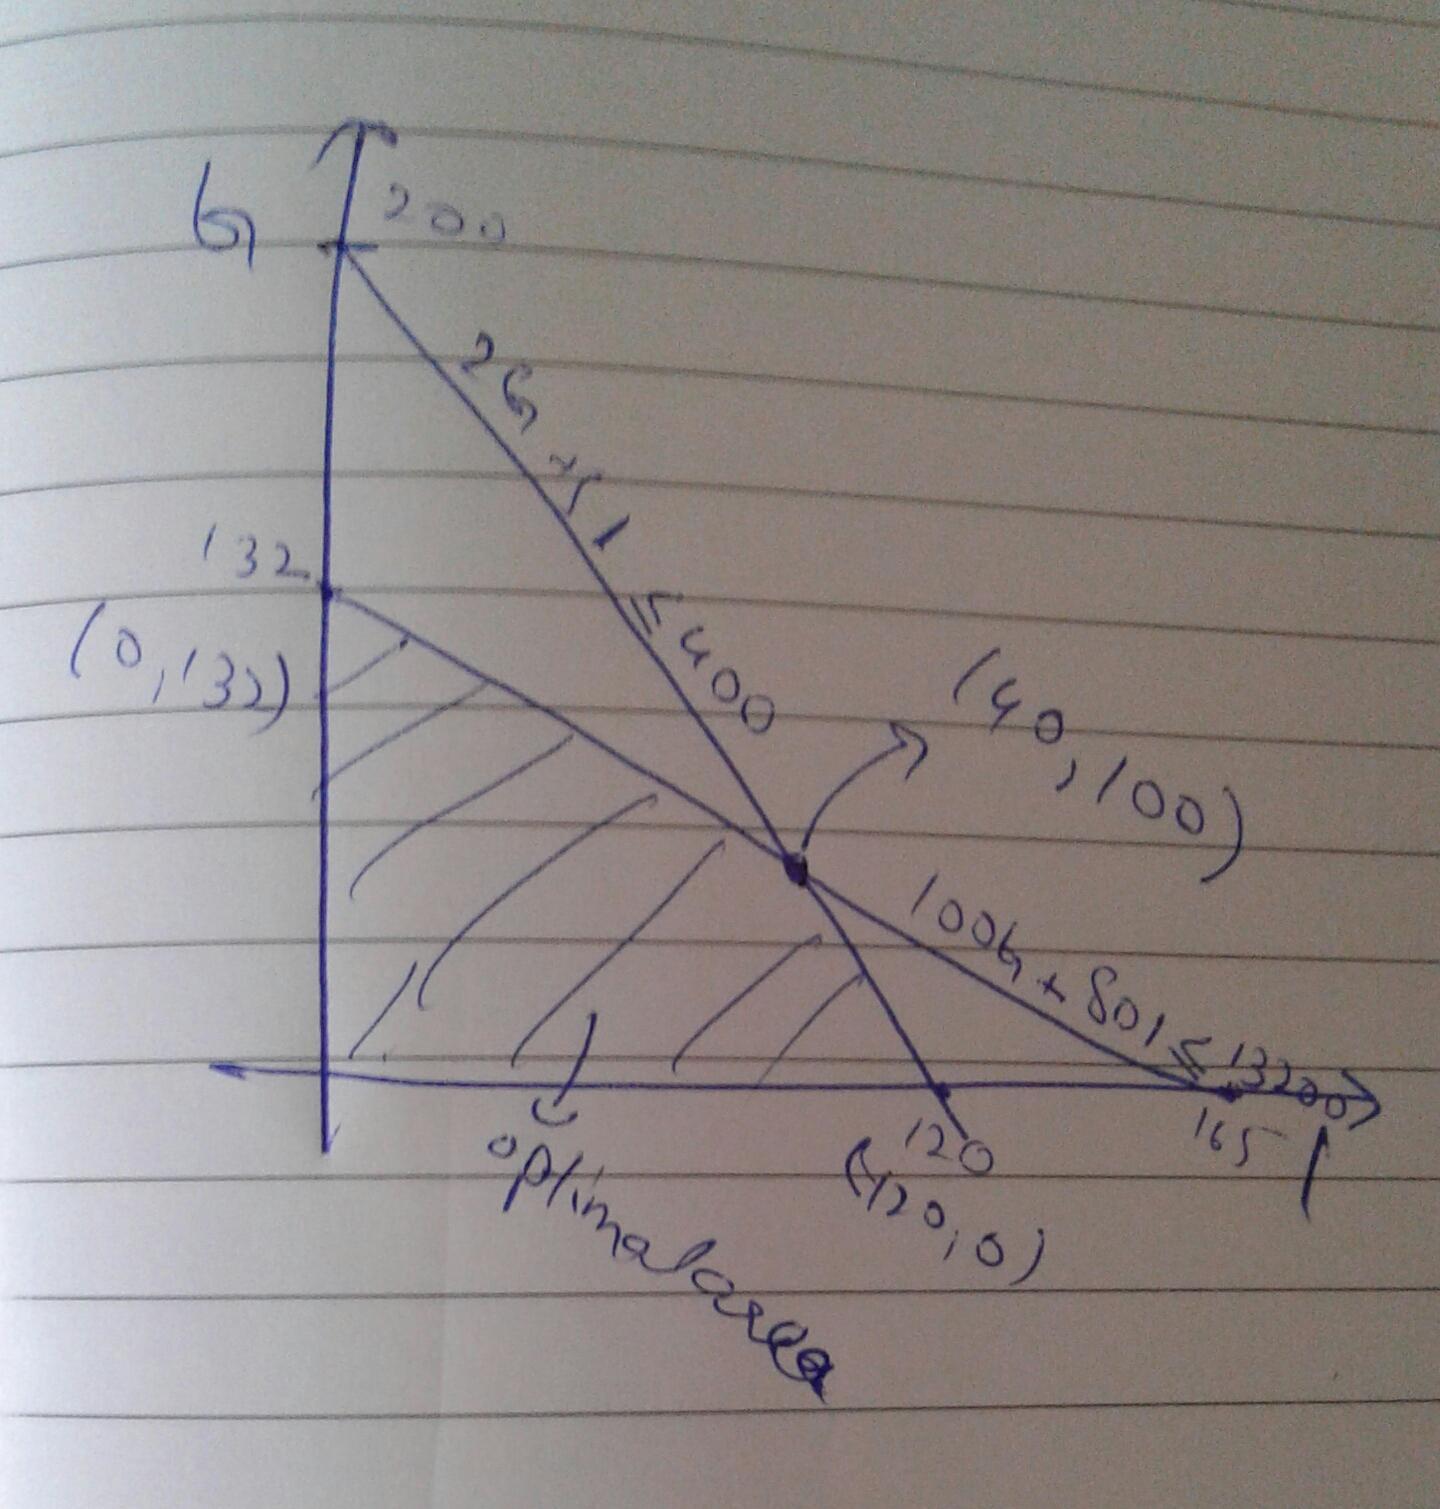 G
200
2G + 5I ≤ 400
132
(0,132)
(40,100)
100G + 80I ≤ 13200
120
(120,0)
165
I
optimal area